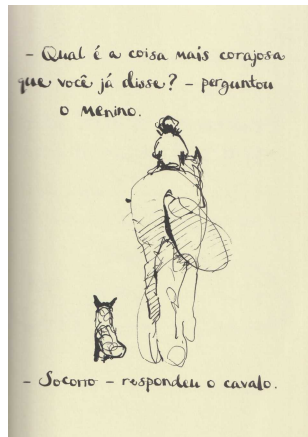 - Qual é a coisa mais corajosa
que você já disse? - perguntou
o menino.
- Socorro - respondeu o cavalo.